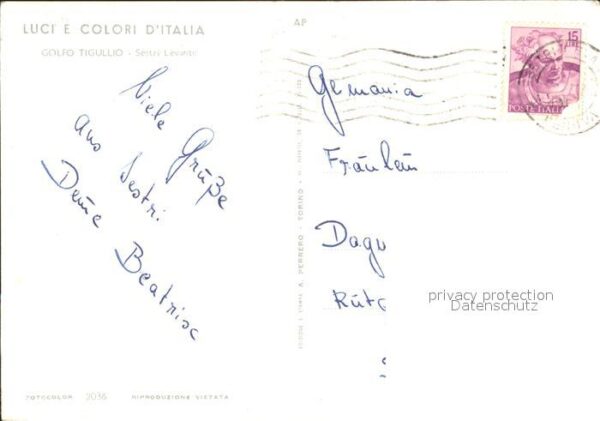 LUCI E COLORI D'ITALIA
GOLFO TIGULLIO - Sestri Levante
AP
15
LIRE
POSTE ITALIANE
Viele Grüße
aus Sestri
Deine Beatrise
Germania
Fräulein
Dagu
Rüto
privacy protection
Datenschutz
A. PERRERO - TORINO
FOTOCOLOR 2036 RIPRODUZIONE VIETATA